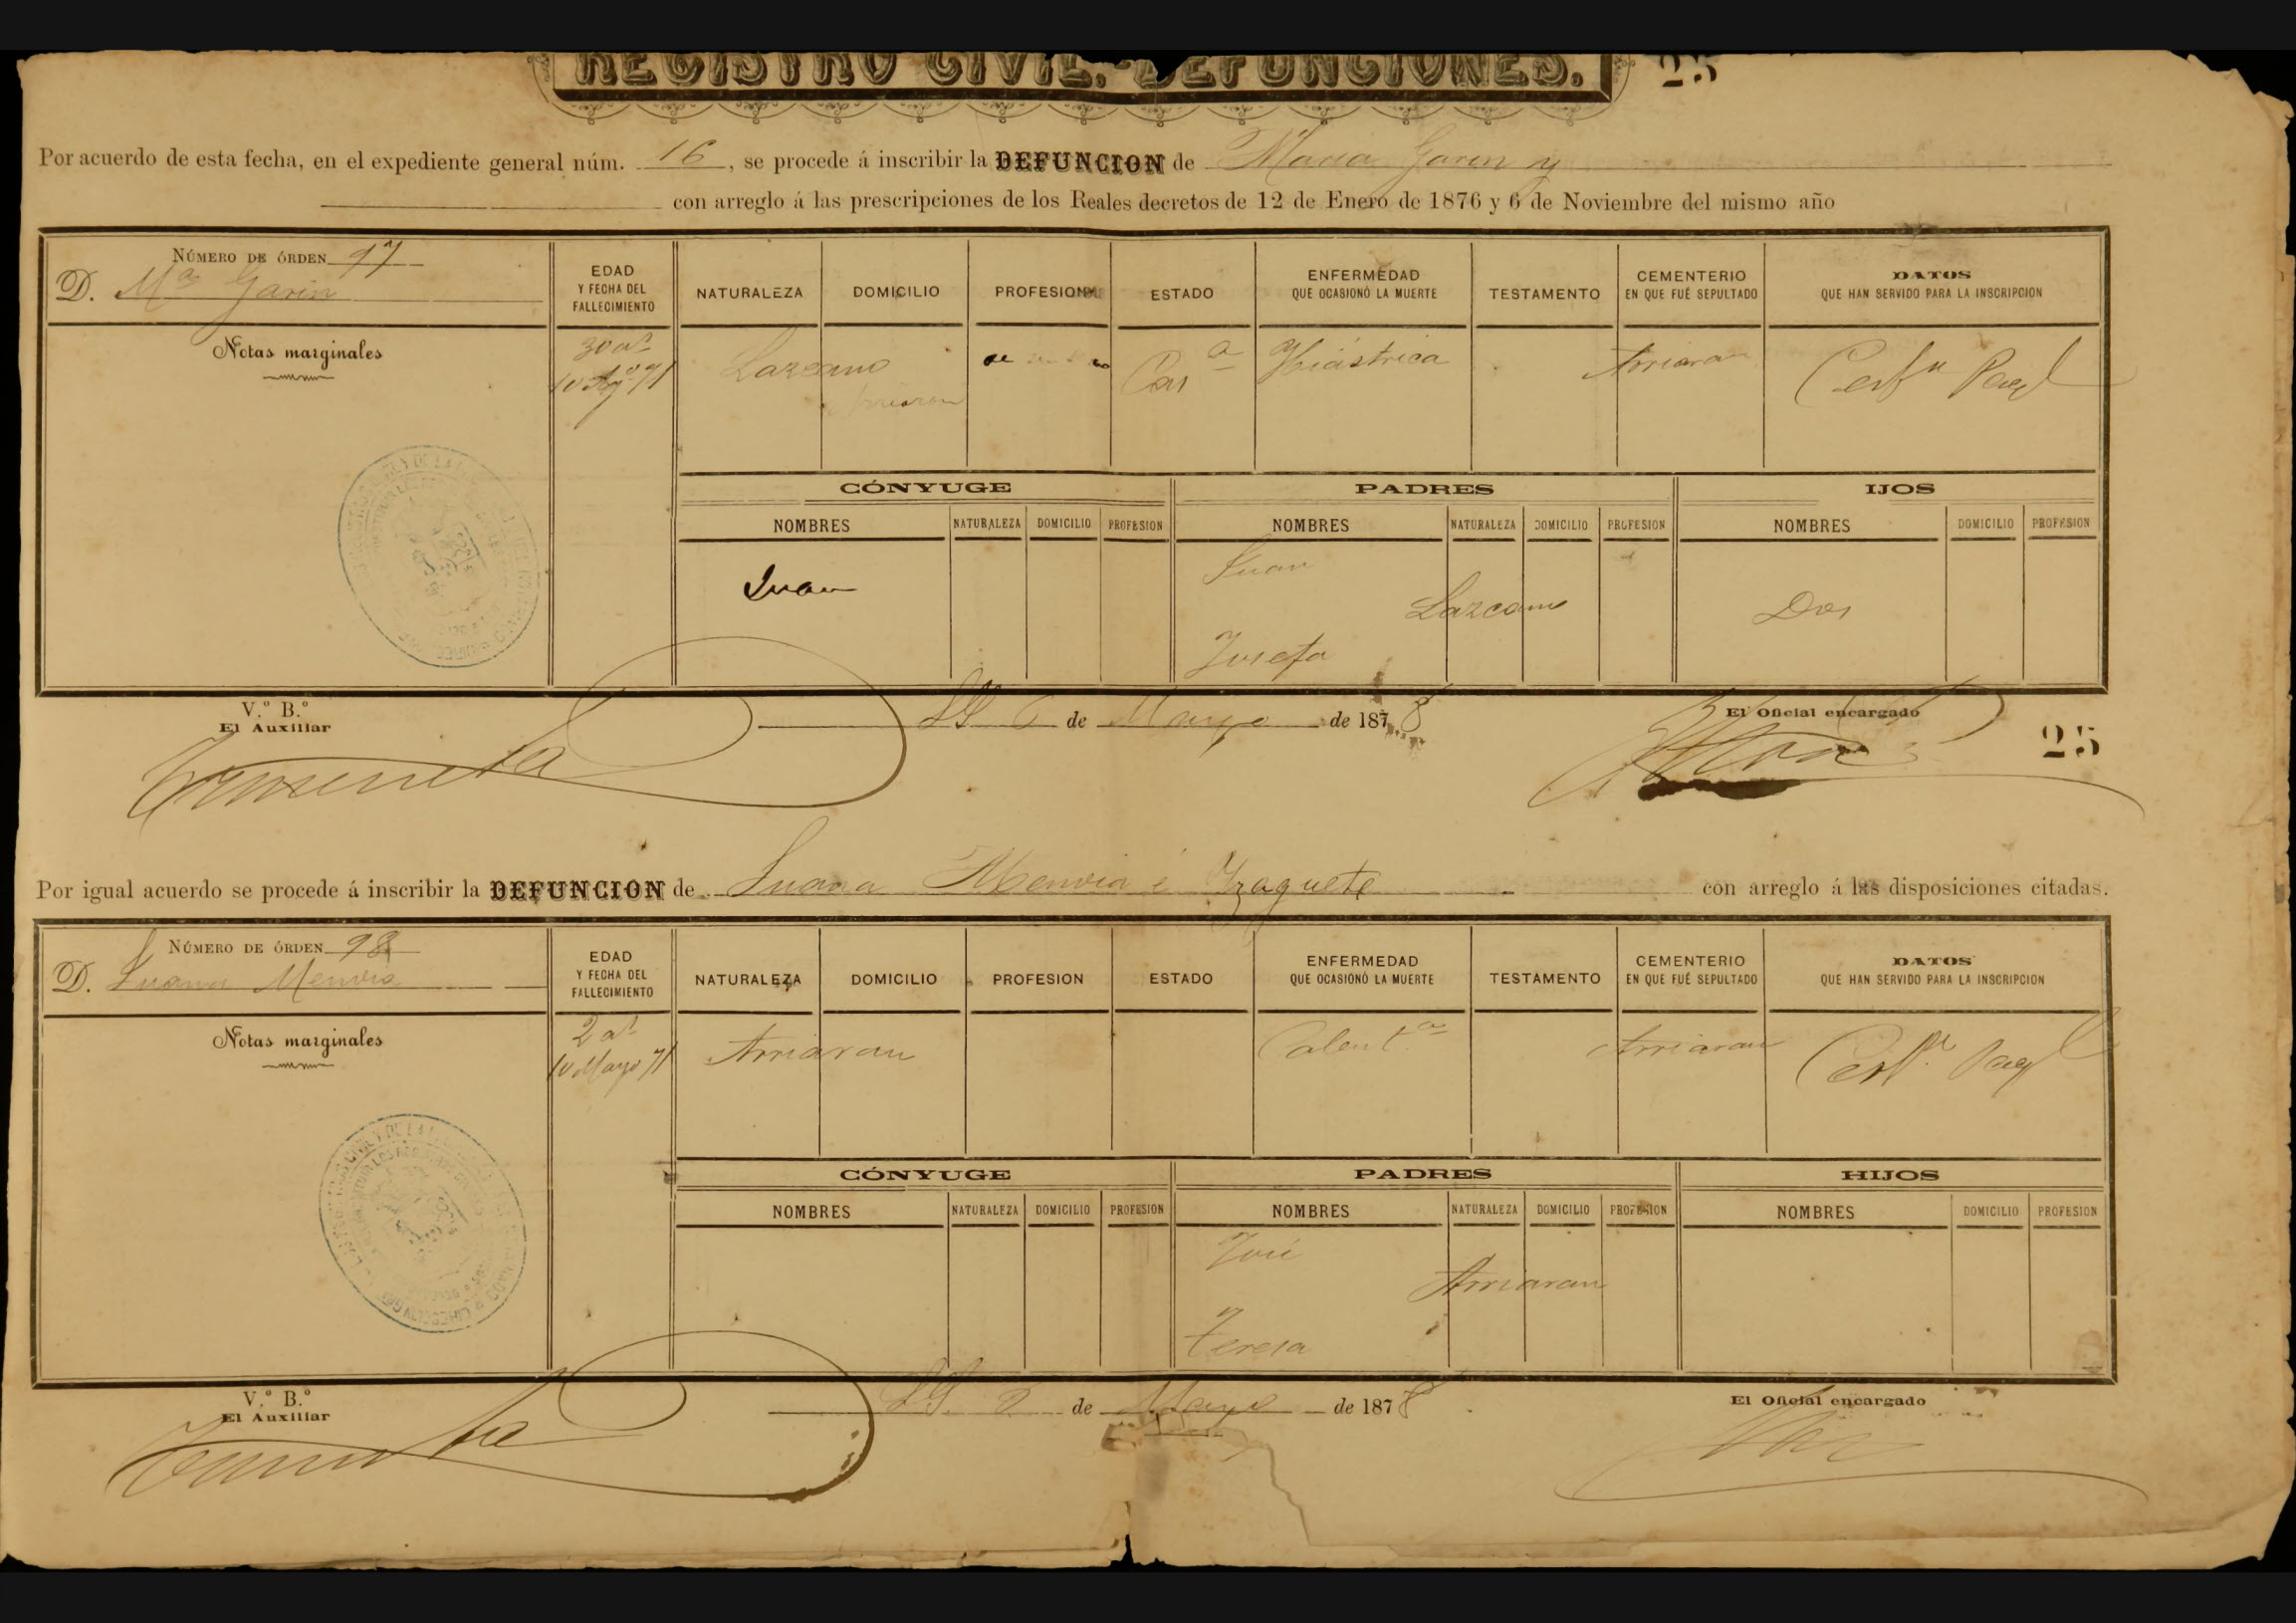 REGISTRO CIVIL.-DEFUNCIONES. 25
Por acuerdo de esta fecha, en el expediente general núm. 16, se procede á inscribir la DEFUNCION de Maria Garin y
con arreglo á las prescripciones de los Reales decretos de 12 de Enero de 1876 y 6 de Noviembre del mismo año
NÚMERO DE ÓRDEN 97
D. Mª Garin
Notas marginales
EDAD
Y FECHA DEL
FALLECIMIENTO
NATURALEZA
DOMICILIO
PROFESION
ESTADO
ENFERMEDAD
QUE OCASIONÓ LA MUERTE
TESTAMENTO
CEMENTERIO
EN QUE FUÉ SEPULTADO
DATOS
QUE HAN SERVIDO PARA LA INSCRIPCION
30 aˢ
10 Agº 71
Lazcano
Arriaran
Casª
Arriaran
CÓNYUGE
PADRES
IJOS
NOMBRES NATURALEZA DOMICILIO PROFESION
NOMBRES NATURALEZA DOMICILIO PROFESION
NOMBRES DOMICILIO PROFESION
Juan
Juan
Lazcano
Josefa
Dos
V.º B.º
El Auxiliar
6 de Mayo de 1878
El Oficial encargado
25
Por igual acuerdo se procede á inscribir la DEFUNCION de Juana é Yzaguete con arreglo á las disposiciones citadas.
NÚMERO DE ÓRDEN 98
D. Juana
Notas marginales
EDAD
Y FECHA DEL
FALLECIMIENTO
NATURALEZA
DOMICILIO
PROFESION
ESTADO
ENFERMEDAD
QUE OCASIONÓ LA MUERTE
TESTAMENTO
CEMENTERIO
EN QUE FUÉ SEPULTADO
DATOS
QUE HAN SERVIDO PARA LA INSCRIPCION
2 aˢ
10 Mayo 71
Arriaran
Calentª
Arriaran
CÓNYUGE
PADRES
HIJOS
NOMBRES NATURALEZA DOMICILIO PROFESION
NOMBRES NATURALEZA DOMICILIO PROFESION
NOMBRES DOMICILIO PROFESION
José
Arriaran
Teresa
V.º B.º
El Auxiliar
6 de Mayo de 1878
El Oficial encargado